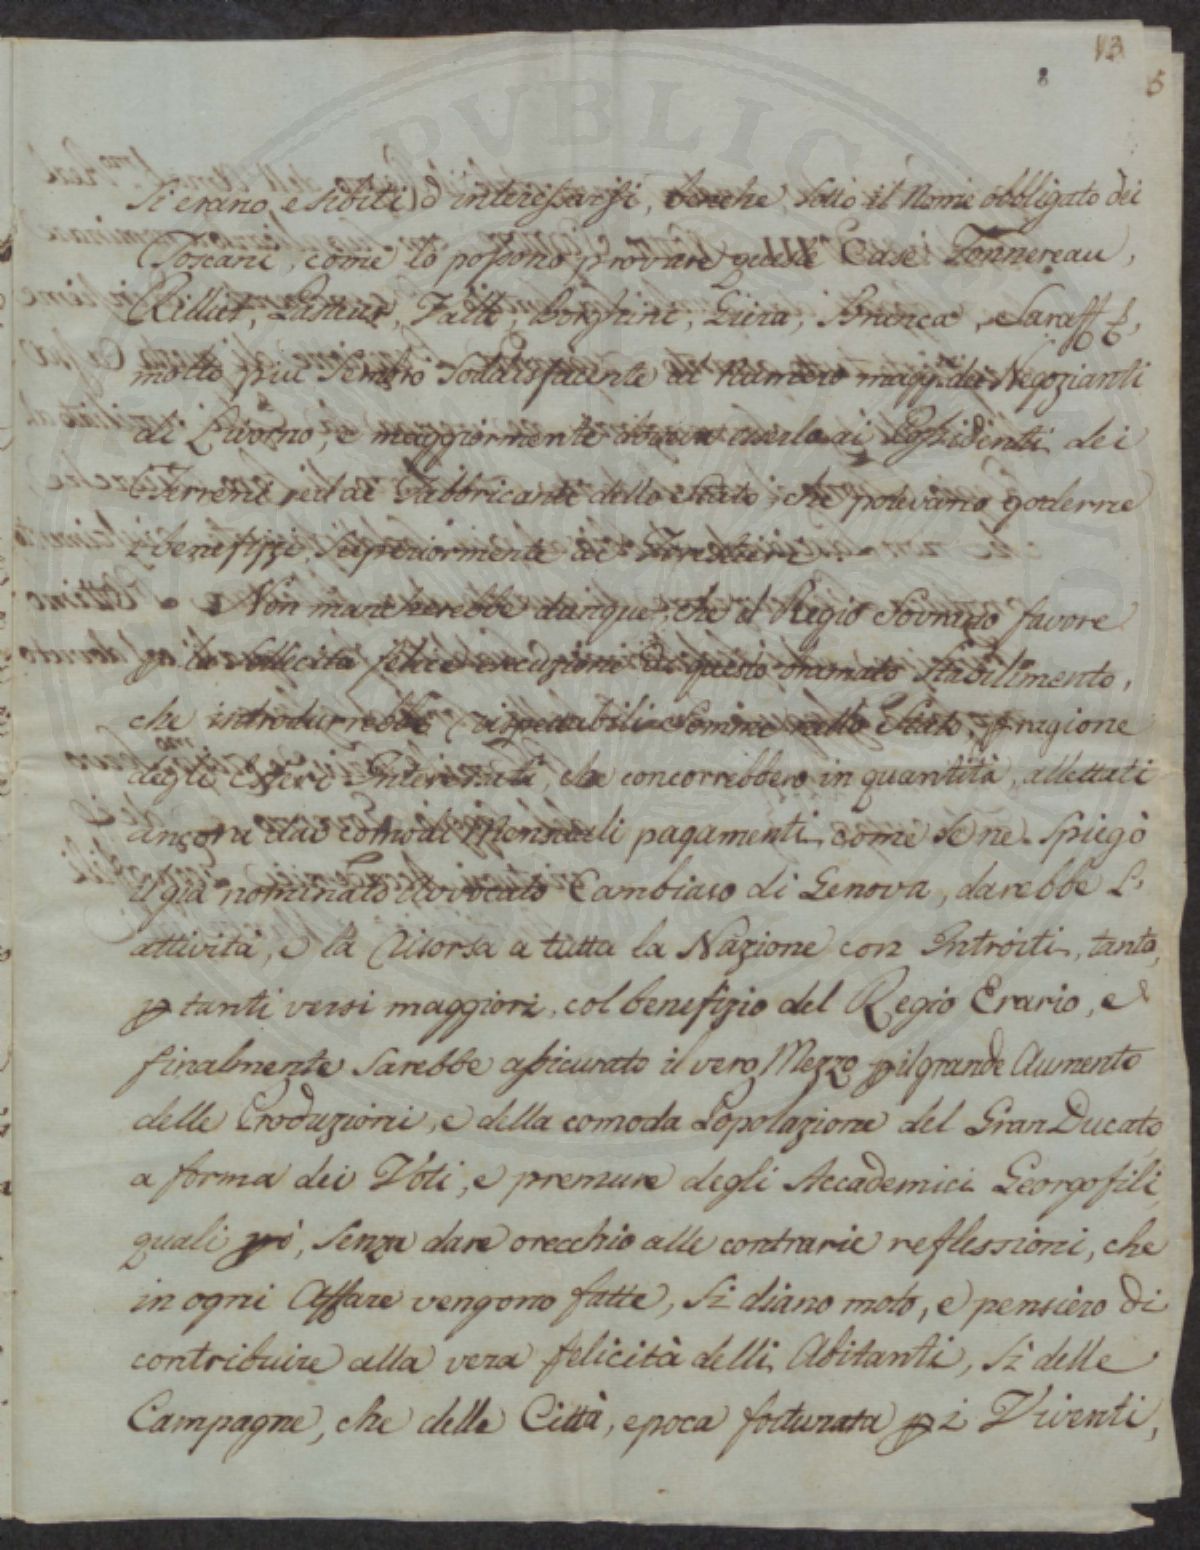 13
8
5
si erano esibiti d'interessarsi, benche sotto il Nome obbligato dei
Toscani, come lo possono provare queste Case Tonnereau,
Rillet, Pasteur, Fatti, Borghini, Giera, Brenca, e Saraff
molto più sembrò sodaisfacente al Numero magg. dei Negozianti
di Livorno, e maggiormente ai Possidenti dei
Terreni, ed ai Fabbricanti dello Stato, che potevano goderne
i benefizzi superiormente ai Forestieri.
Non mancherebbe dunque, che il Regio Sovrano favore
p la sollecita felice erecuzione di questo bramato stabilimento,
che introdurrebbe rispettabili Somme nello Stato, p ragione
degli Esteri Interessati, che concorrebbero in quantità, allettati
ancora dai comodi Mensuali pagamenti, come se ne spiegò
il già nominato Avvocato Cambiaso di Genova, darebbe l'
attività, e la risorsa a tutta la Nazione con Introiti, tanto,
p tanti versi maggiori, col benefizio del Regio Erario, e
finalmente sarebbe assicurato il vero Mezzo p il grande Aumento
delle Produzioni, e della comoda Popolazione del Gran Ducato
a forma dei Voti, e premure degli Accademici Georgofili,
quali pò, senza dare orecchio alle contrarie reflessioni, che
in ogni Affare vengono fatte, si diano moto, e pensiero di
contribuire alla vera felicità delli Abitanti, sì delle
Campagne, che delle Città, epoca fortunata p i Viventi,